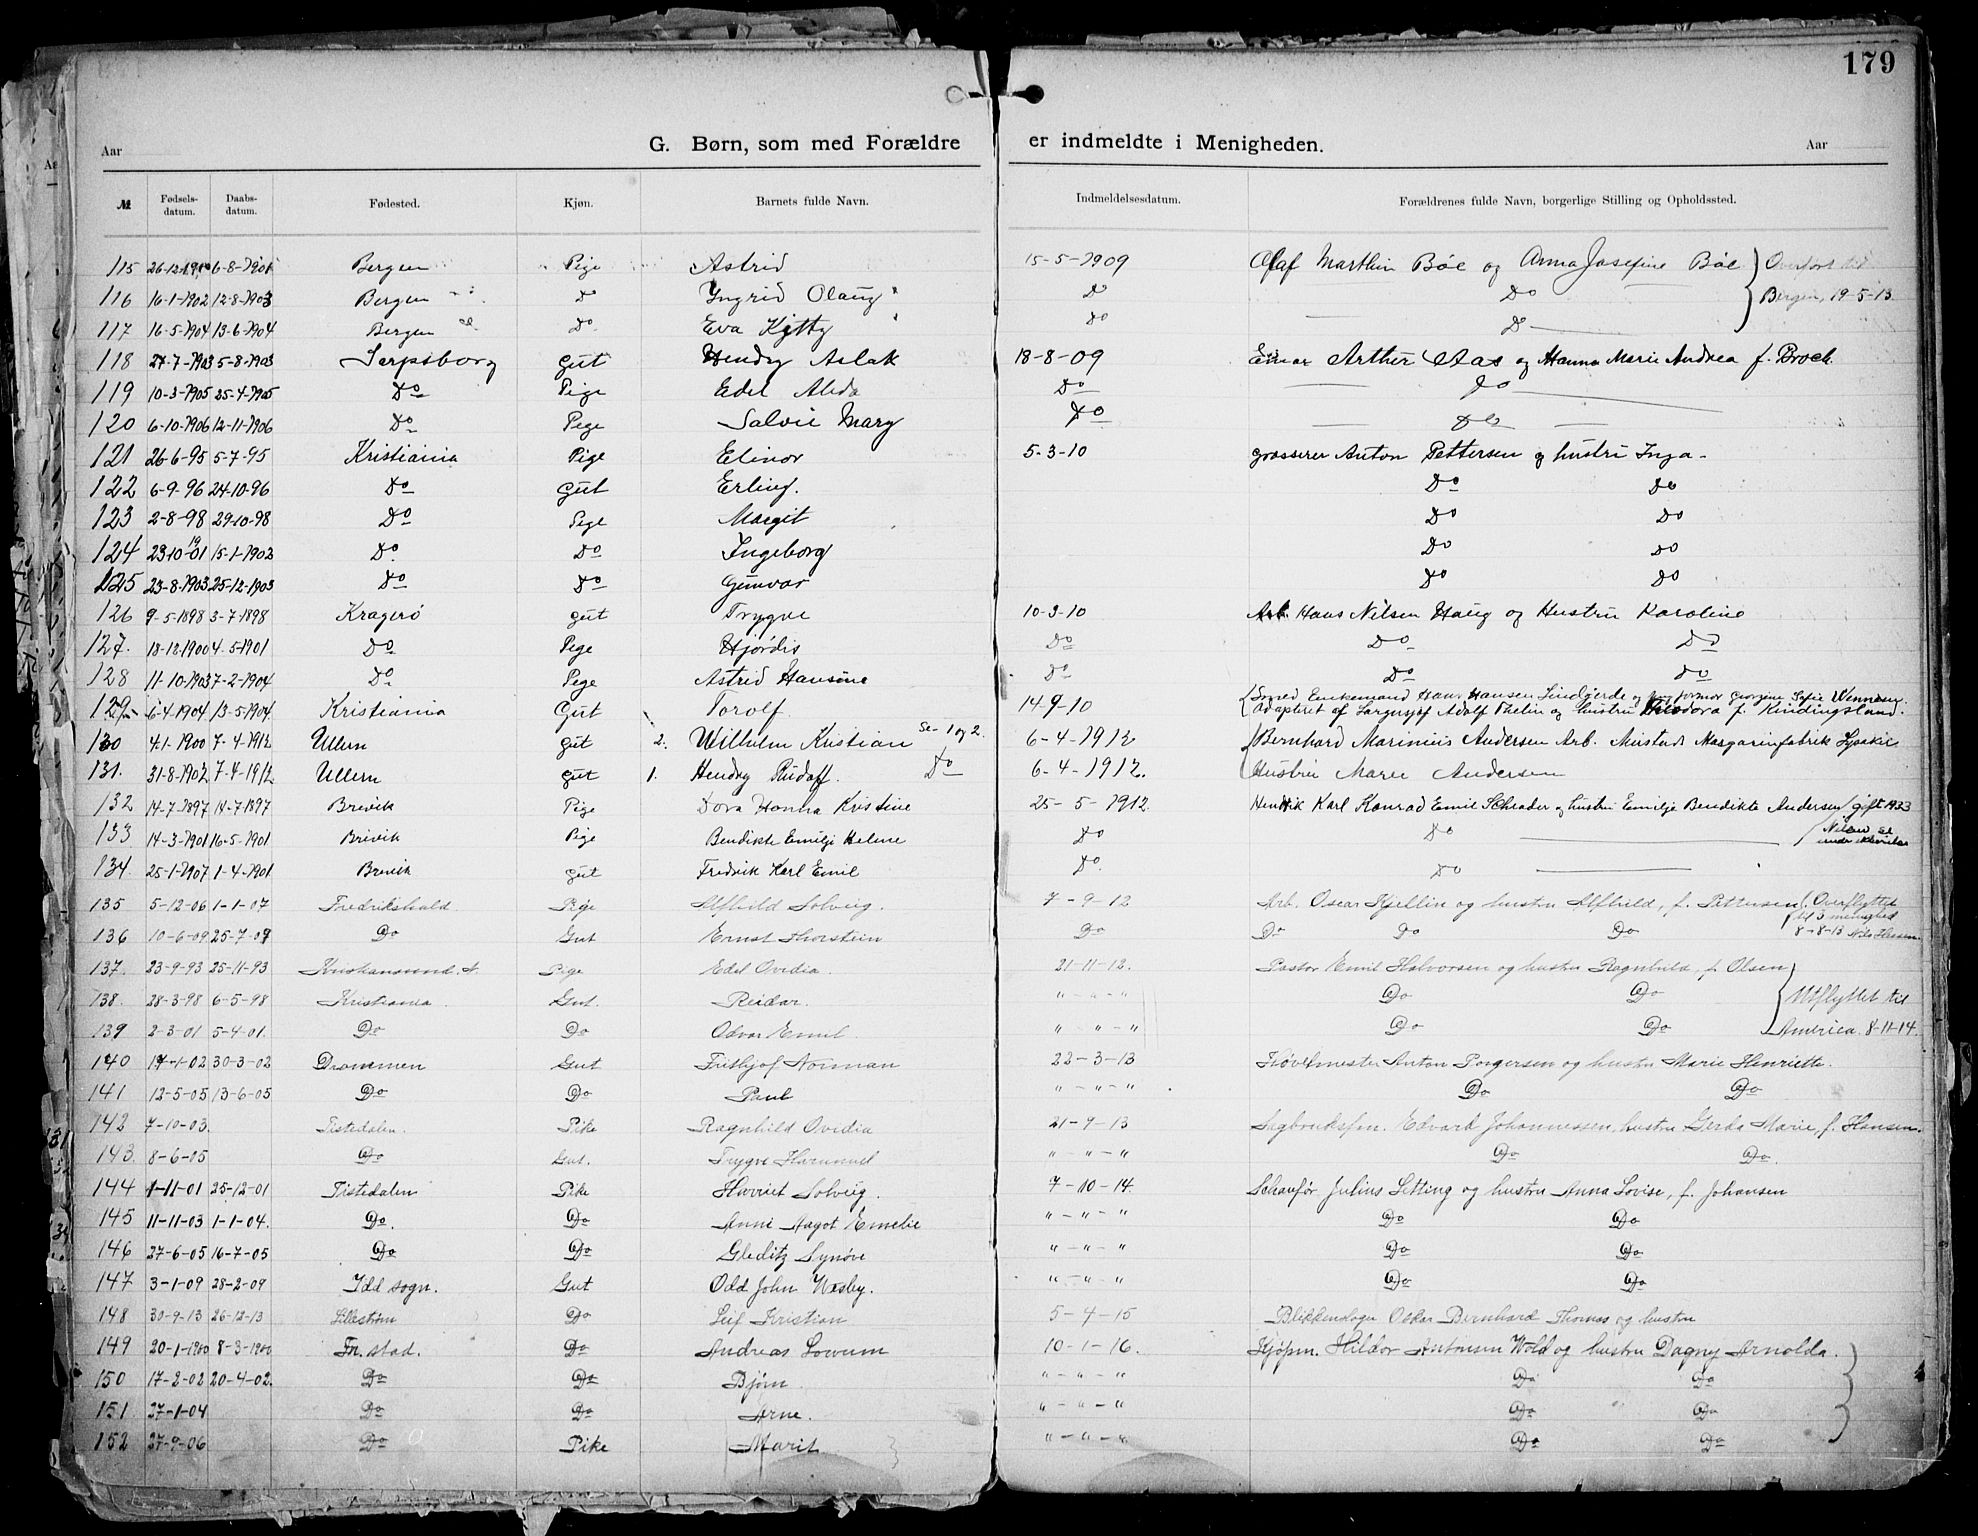 179
G. Børn, som med Forældre er indmeldte i Menigheden.
Aar Aar
№ Fødsels-datum. Daabs-datum. Fødested. Kjøn. Barnets fulde Navn. Indmeldelsesdatum. Forældrenes fulde Navn, borgerlige Stilling og Opholdssted.
115 6-8-1901 Bergen Pige Astrid 15-5-1909 Olaf Marthin Bøe og Anna Josefine Bøe Overført til
116 16-1-1902 12-8-1903 Bergen Do Ingrid Olaug Do Do Bergen, 19-5-13
117 16-5-1904 13-6-1904 Bergen Do Eva Kitty Do Do
118 27-7-1903 5-8-1903 Serpsborg Gut Hendry Aslak 18-8-09 Einar Arthur Aas og Hanna Marie Andrea f. Broch
119 10-3-1905 25-4-1905 Do Pige Edel Alida Do Do
120 6-10-1906 12-11-1906 Do Pege Salvie Mary Do Do
121 26-6-95 5-7-95 Kristiania Pige Elinor 5-3-10 grosserer Anton Pettersen og hustru Inga
122 6-9-96 24-10-96 Do Gut Erling. Do Do
123 2-8-98 29-10-98 Do Pige Margit Do Do
124 23-10-1901 15-1-1902 Do Do Ingeborg Do Do
125 23-8-1903 25-12-1903 Do Do Gunvor Do Do
126 9-5-1898 3-7-1898 Kragerø gut Trygve 10-3-10 Arb. Hans Nilsen Haug og Hustru Karoline
127. 18-12-1900 4-5-1901 Do Pege Hjørdis Do Do Do
128 11-10-1903 7-2-1904 Do Pege Astrid Hansine Do Do Do
129 6-4-1904 13-5-1904 Kristiania Gut Torolf 14-9-10 Smed Enkemand Hans Hansen
Adopteret af Adolf Thelin og hustru
130 4-1-1900 7-4-1912 Ullern gut 2. Wilhelm Kristian Se 1 og 2. 6-4-1912 Bernhard Marinius Andersen Arb. Margarinfabrik Lysaker
131. 31-8-1902 7-4-1912 Ullern gut 1. Hendry Rudolf. Do 6-4-1912. Hustru Marie Andersen
132 14-7-1897 14-7-1897 Brevik Pige Dora Hanna Kristine 25-5-1912. Hendrik Karl Konrad Emil Schrader og hustru Emilje Bendikte Andersen gift 1923
133 14-3-1901 16-5-1901 Brevik Pige Bendikte Emilje Helene Do Do
134. 25-1-1907 1-4-1901 Brevik gut Fredrik Karl Emil Do. Do
135 5-12-06 1-1-07 Fredrikshald. Pige Alfhild Solveig. 7-9-12 Arb. Oscar Kjellin og hustru Alfhild, f. Pettersen Overflyttet
til 3 menighed
136 10-6-09 25-7-09 Do Gut Ernst Thorstein Do Do Do Do 8-8-13
137. 23-9-93 25-11-93 Kristiansund. N. Pige Edel Ovidia. 21-11-12. Pastor Emil Halvorsen og hustru Ragnhild, f. Olsen
138. 28-3-98 6-5-98 Kristiania. Gut. Reidar. " - " - " Do Do Utflyttet til
139 2-3-01 5-4-01. Do Do Odvar Emil " - " - " Do Do America. 8-11-14.
140 17-1-02 30-3-02 Drammen Gut Frithjof Norman 22-3-13 Anton Torgersen og hustru Marie Henriette.
141 12-5-05 13-6-05 Do Do Paul " - " - " Do Do
142 7-10-03. Tistedalen. Pike Ragnhild Ovidia 21-9-13 Sagbruksfm. Edvard Johannessen, hustru Gerda Marie, f. Hansen.
143. 8-6-05 Do Gut. Trygve " - " - " Do Do.
144 1-11-01 25-12-01 Tistedalen Pike Harriet Solveig. 7-10-14. Schaufør Julius Setting og hustru Anna Lovise, f. Johansen
145 11-11-03 1-1-04. Do. Do Anni Aagot Emelie " - " - " Do Do
146 27-6-05 16-7-05 Do Do Gleditz Synøve " - " - " Do Do
147 3-1-09 28-2-09 Idd sogn. Gut Odd John Næsby. " - " - " Do Do
148 30-9-13 26-12-13 Lillestrøm Do Leif Kristian 5-4-15 Oskar Bernhard Thomas og hustru
149 20-1-1900 8-3-1900 Fr. stad. Do Andreas 10-1-16. Kjøpm. Hildor Antonsen Wold og hustru Dagny Arnolda.
150 17-2-02 20-4-02. Do Do Bjørn. " - " - " Do Do
151. 27-1-04 Do Do Arne. " - " - " Do Do
152 27-9-06 Do Pike Marit " - " - " Do Do